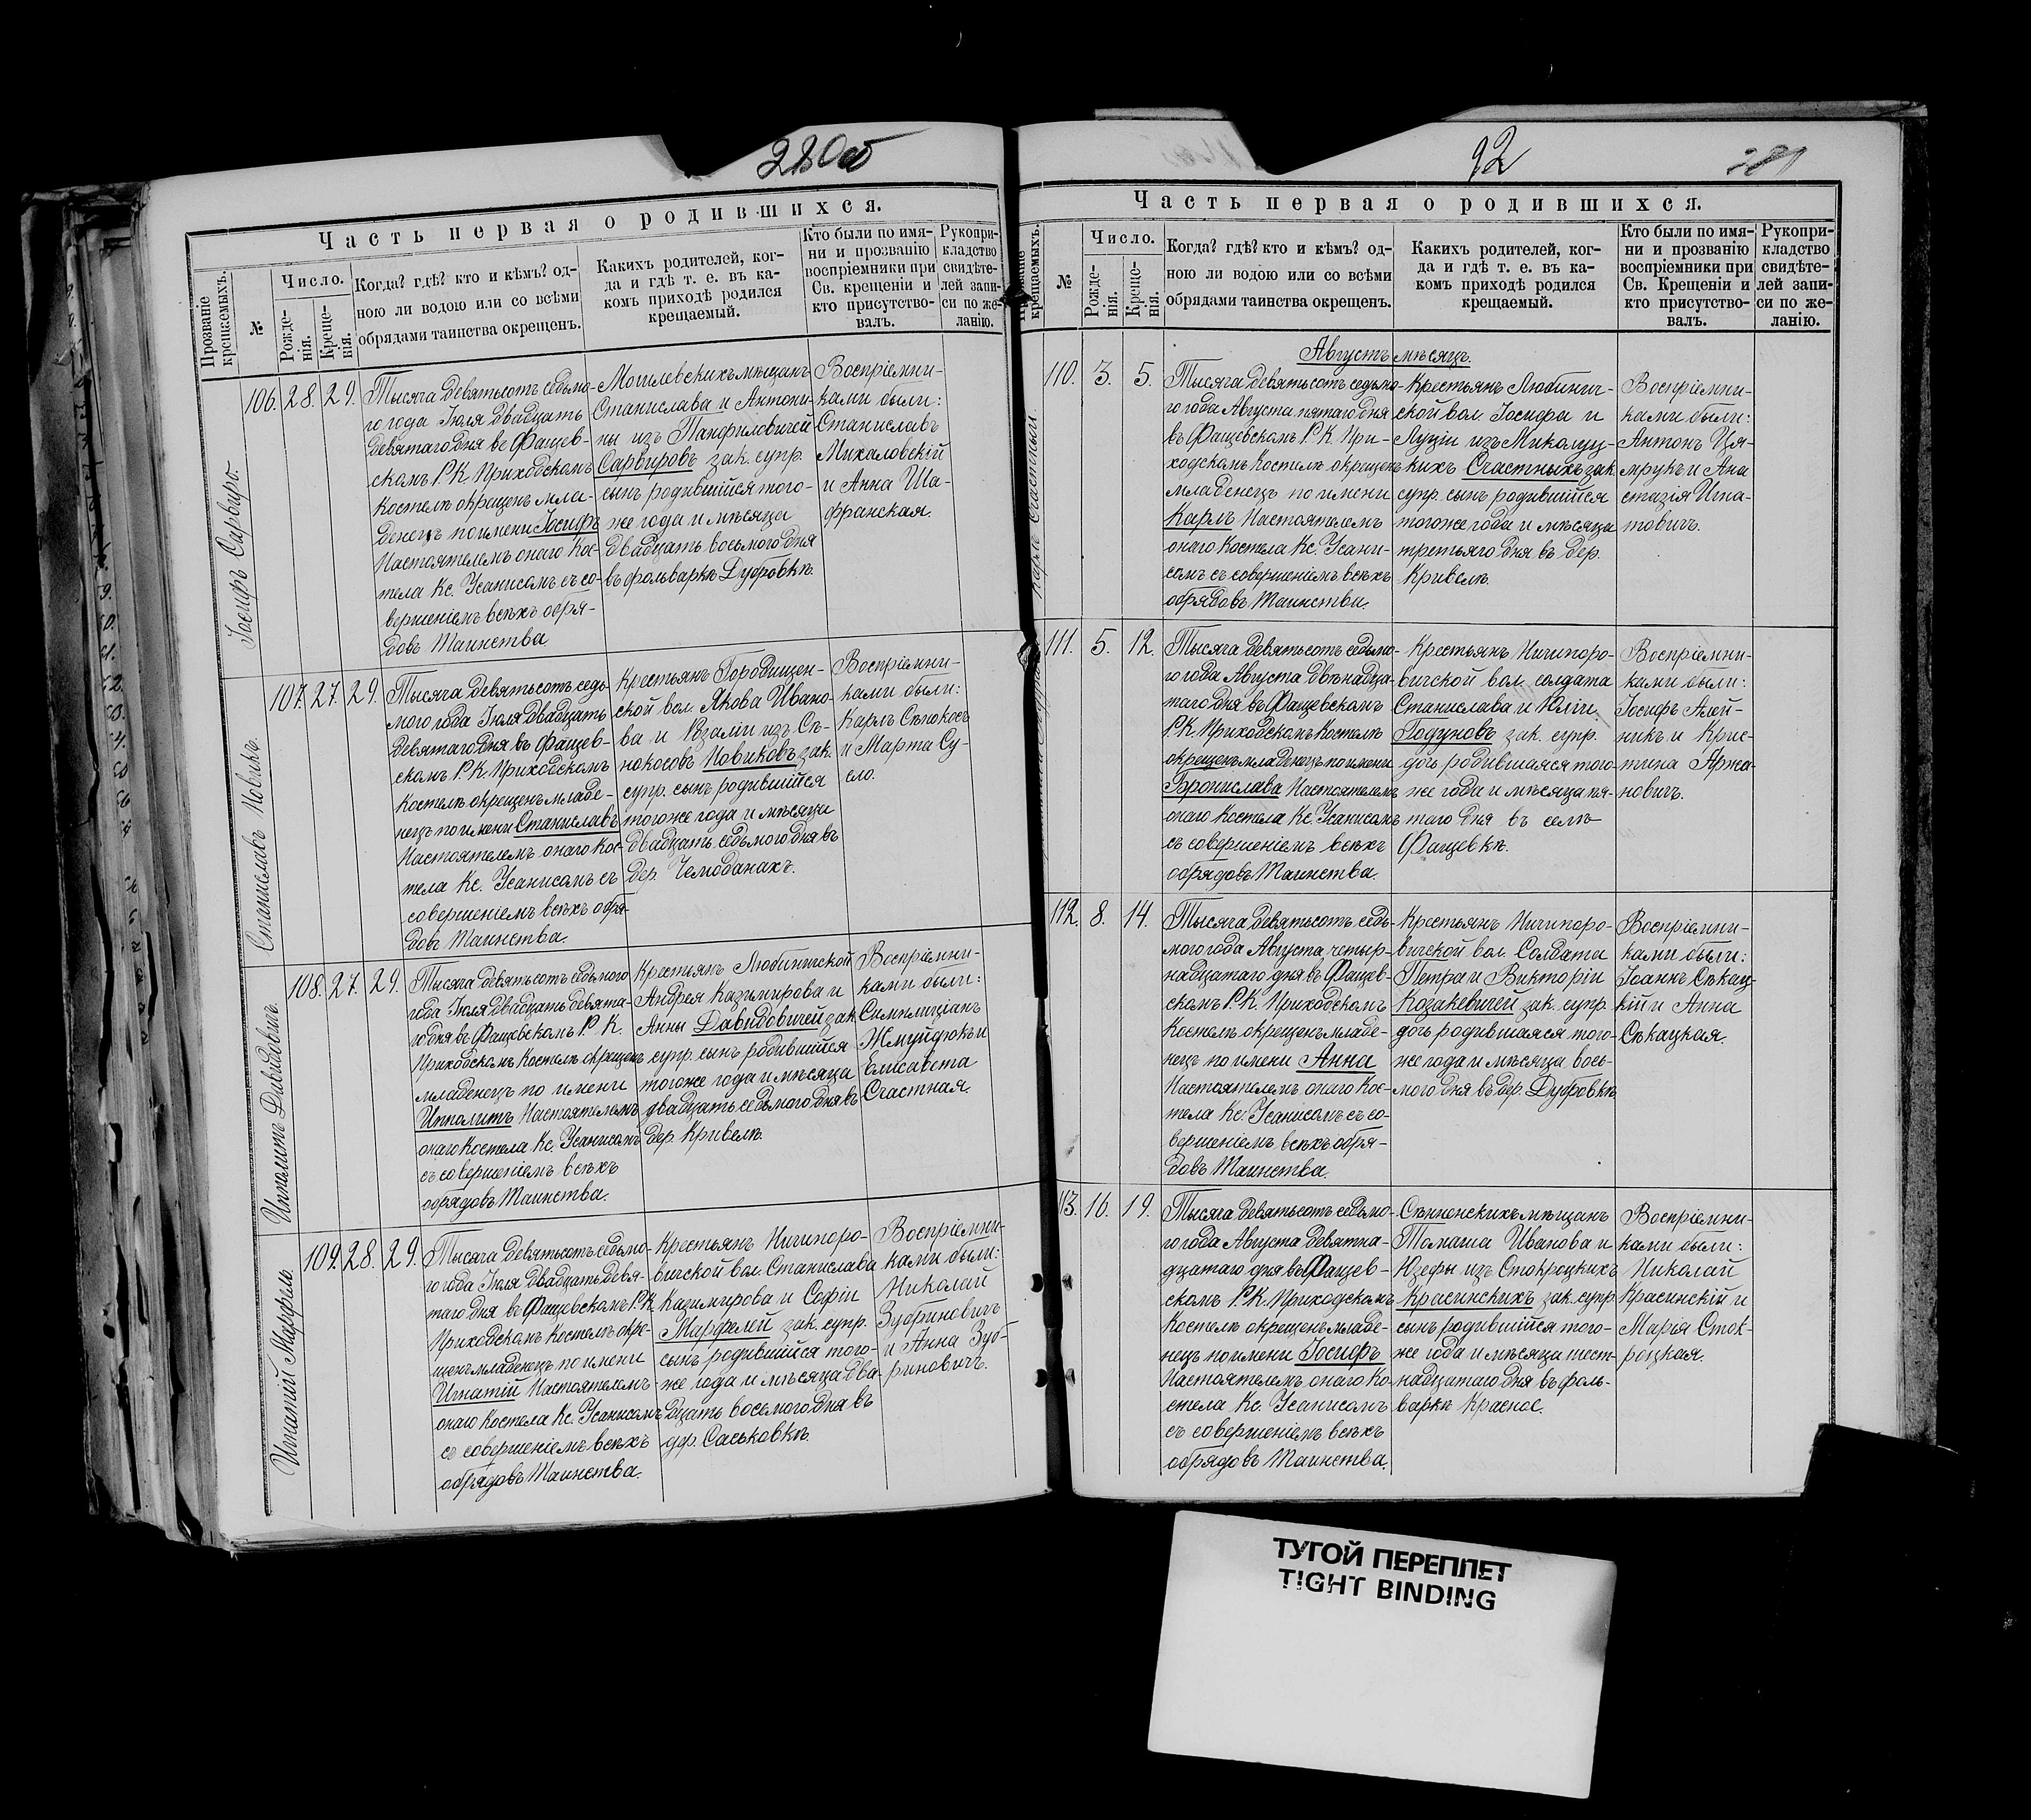 280об
Часть первая о родившихся.
Прозваніе крещаемыхъ.
№
Число.
Рожде-
нія.
Креще-
нія.
Когда? гдѣ? кто и кѣмъ? од-
ною ли водою или со всѣми
обрядами таинства окрещенъ.
Какихъ родителей, ког-
да и гдѣ т. е. въ ка-
комъ приходѣ родился
крещаемый.
Кто были по имя-
ни и прозванію
воспріемники при
Св. крещеніи и
кто присутство-
валъ.
Рукопри-
кладство
свидѣте-
лей запи-
си по же-
ланію.
Іосифъ Сарвиро.
106. 28. 29.
Тысяча девятьсотъ седьмо-
го года Іюля двадцать
девятаго дня въ Фащев-
скомъ Р. К. Приходскомъ
Костелѣ окрещенъ мла-
денецъ по имени Іосифъ
Настоятелемъ онаго Кос-
тела Кс. Усанисомъ съ со-
вершеніемъ всѣхъ обря-
довъ Таинства.
Могилевскихъ мѣщанъ
Станислава и Антони-
ны изъ Панфиловичей
Сарвировъ зак. супр.
сынъ родившійся того-
же года и мѣсяца
двадцать восьмого дня
въ фольваркѣ Дубровкѣ.
Воспріемни-
ками были:
Станиславъ
Михаловскій
и Анна Ша-
франская.
Станиславъ Новикъ.
107. 27. 29.
Тысяча девятьсотъ седь-
мого года Іюля двадцать
девятаго дня въ Фащев-
скомъ Р. К. Приходскомъ
Костелѣ окрещенъ младе-
нецъ по имени Станиславъ
Настоятелемъ онаго Кос-
тела Кс. Усанисомъ съ
совершеніемъ всѣхъ обря-
довъ Таинства.
Крестьянъ Городищен-
ской вол. Якова Ивано-
ва и Розаліи изъ Сѣ-
нокосовъ Новиковъ зак.
супр. сынъ родившійся
тогоже года и мѣсяца
двадцать седьмого дня въ
дер. Чемоданахъ.
Воспріемни-
ками были:
Карлъ Сѣнокосъ
и Марта Су-
ело.
Ипполитъ Давидовичъ.
108. 27. 29.
Тысяча девятьсотъ седьмого
года Іюля двадцать девята-
го дня въ Фащевскомъ Р. К.
Приходскомъ Костелѣ окрещенъ
младенецъ по имени
Ипполитъ Настоятелемъ
онаго Костела Кс. Усанисомъ
съ совершеніемъ всѣхъ
обрядовъ Таинства.
Крестьянъ Любиничской
Андрея Казимирова и
Анны Давидовичей зак.
супр. сынъ родившійся
тогоже года и мѣсяца
двадцать седьмого дня въ
дер. Кривелѣ.
Воспріемни-
ками были:
Симплиціанъ
Жмуйдюкъ и
Елисавета
Счастная.
Игнатій Марфель.
109. 28. 29.
Тысяча девятьсотъ седьмо-
го года Іюля двадцать девя-
таго дня въ Фащевскомъ Р. К.
Приходскомъ Костелѣ окре-
щенъ младенецъ по имени
Игнатій Настоятелемъ
онаго Костела Кс. Усанисомъ
съ совершеніемъ всѣхъ
обрядовъ Таинства.
Крестьянъ Ничипоро-
вичской вол. Станислава
Казимирова и Софіи
Марфелей зак. супр.
сынъ родившійся того-
же года и мѣсяца два-
дцать восемого дня въ
дер. Саськовкѣ.
Воспріемни-
ками были:
Николай
Зубриновичъ
и Анна Зуб-
риновичъ.
92
281
Часть первая о родившихся.
Прозваніе
крещаемыхъ.
№
Число.
Рожде-
нія.
Креще-
нія.
Когда? гдѣ? кто и кѣмъ? од-
ною ли водою или со всѣми
обрядами таинства окрещенъ.
Какихъ родителей, ког-
да и гдѣ т. е. въ ка-
комъ приходѣ родился
крещаемый.
Кто были по имя-
ни и прозванію
воспріемники при
Св. Крещеніи и
кто присутство-
валъ.
Рукопри-
кладство
свидѣте-
лей запи-
си по же-
ланію.
Августъ мѣсяцъ.
Карлъ Счастный.
110. 3. 5.
Тысяча девятьсотъ седьмо-
го года Августа пятаго дня
въ Фащевскомъ Р. К. При-
ходскомъ Костелѣ окрещенъ
младенецъ по имени
Карлъ Настоятелемъ
онаго Костела Кс. Усани-
сомъ съ совершеніемъ всѣхъ
обрядовъ Таинства.
Крестьянъ Любинич-
ской вол. Іосифа и
Луціи изъ Миколуц-
кихъ Счастныхъ зак.
супр. сынъ родившійся
тогоже года и мѣсяца
третьяго дня въ дер.
Кривелѣ.
Воспріемни-
ками были:
Антонъ Ця-
мрукъ и Ана
стазія Игна-
товичъ.
111. 5. 12.
Тысяча девятьсотъ седьмо-
го года Августа двѣнадца-
таго дня въ Фащевскомъ
Р. К. Приходскомъ Костелѣ
окрещенъ младенецъ по имени
Бронислава Настоятелемъ
онаго Костела Кс. Усанисомъ
съ совершеніемъ всѣхъ
обрядовъ Таинства.
Крестьянъ Ничипоро-
вичской вол. солдата
Станислава и Юліи
Годуновъ зак. супр.
дочь родившаяся того-
же года и мѣсяца пя-
таго дня въ селѣ
Фащевкѣ.
Воспріемни-
ками были:
Іосифъ Алей-
никъ и Крис-
тина Аржа-
новичъ.
112. 8. 14.
Тысяча девятьсотъ седь-
мого года Августа четыр-
надцатаго дня въ Фащев-
скомъ Р. К. Приходскомъ
Костелѣ окрещенъ младе-
нецъ по имени Анна
Настоятелемъ онаго Кос-
тела Кс. Усанисомъ съ со-
вершеніемъ всѣхъ обря-
довъ Таинства.
Крестьянъ Ничипоро-
вичской вол. Солдата
Петра и Викторіи
Козакевичей зак. супр.
дочь родившаяся того-
же года и мѣсяца вось-
мого дня въ дер. Дубровкѣ.
Воспріемни-
ками были:
Іоаннъ Сѣкац-
кій и Анна
Сѣкацкая.
113. 16. 19.
Тысяча девятьсотъ седьмо-
го года Августа девятна-
дцатаго дня въ Фащев-
скомъ Р. К. Приходскомъ
Костелѣ окрещенъ младе-
нецъ по имени Іосифъ
Настоятелемъ онаго Ко-
стела Кс. Усанисомъ
съ совершеніемъ всѣхъ
обрядовъ Таинства.
Сѣнненскихъ мѣщанъ
Томаша Иванова и
Юзефы изъ Стокроцкихъ
Красинскихъ зак. супр.
сынъ родившійся того-
же года и мѣсяца шест-
надцатаго дня въ фоль-
варкѣ Красное.
Воспріемни-
ками были:
Николай
Красинскій и
Марья Сток-
роцкая.
ТУГОЙ ПЕРЕПЛЕТ
TIGHT BINDING